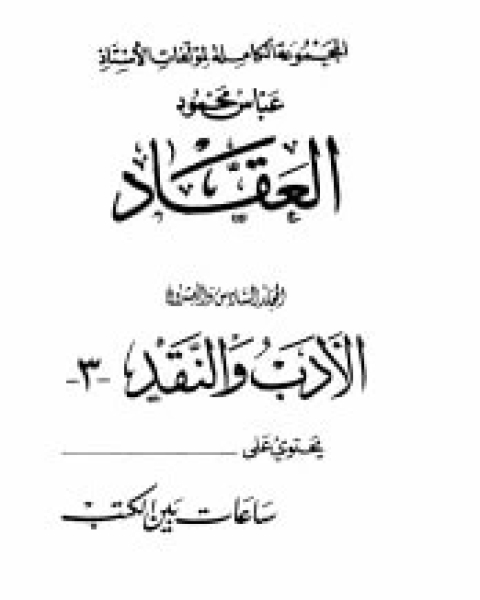 المجموعة الكاملة لمؤلفات الأستاذ
عباس محمود
العقاد
المجلد السادس والعشرون
الأدب والنقد -٣-
يحتوي على
ساعات بين الكتب